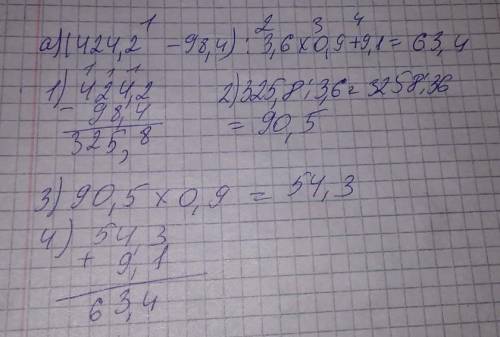 1 2 3 4
а)(424,2 -98,4) : 3,6×0,9+9,1= 63,4
1) 424,2 2) 325,8:3,6=3258:36
- 98,4 = 90,5
325,8
3) 90,5 × 0,9 = 54,3
4) 54,3
+ 9,1
63,4